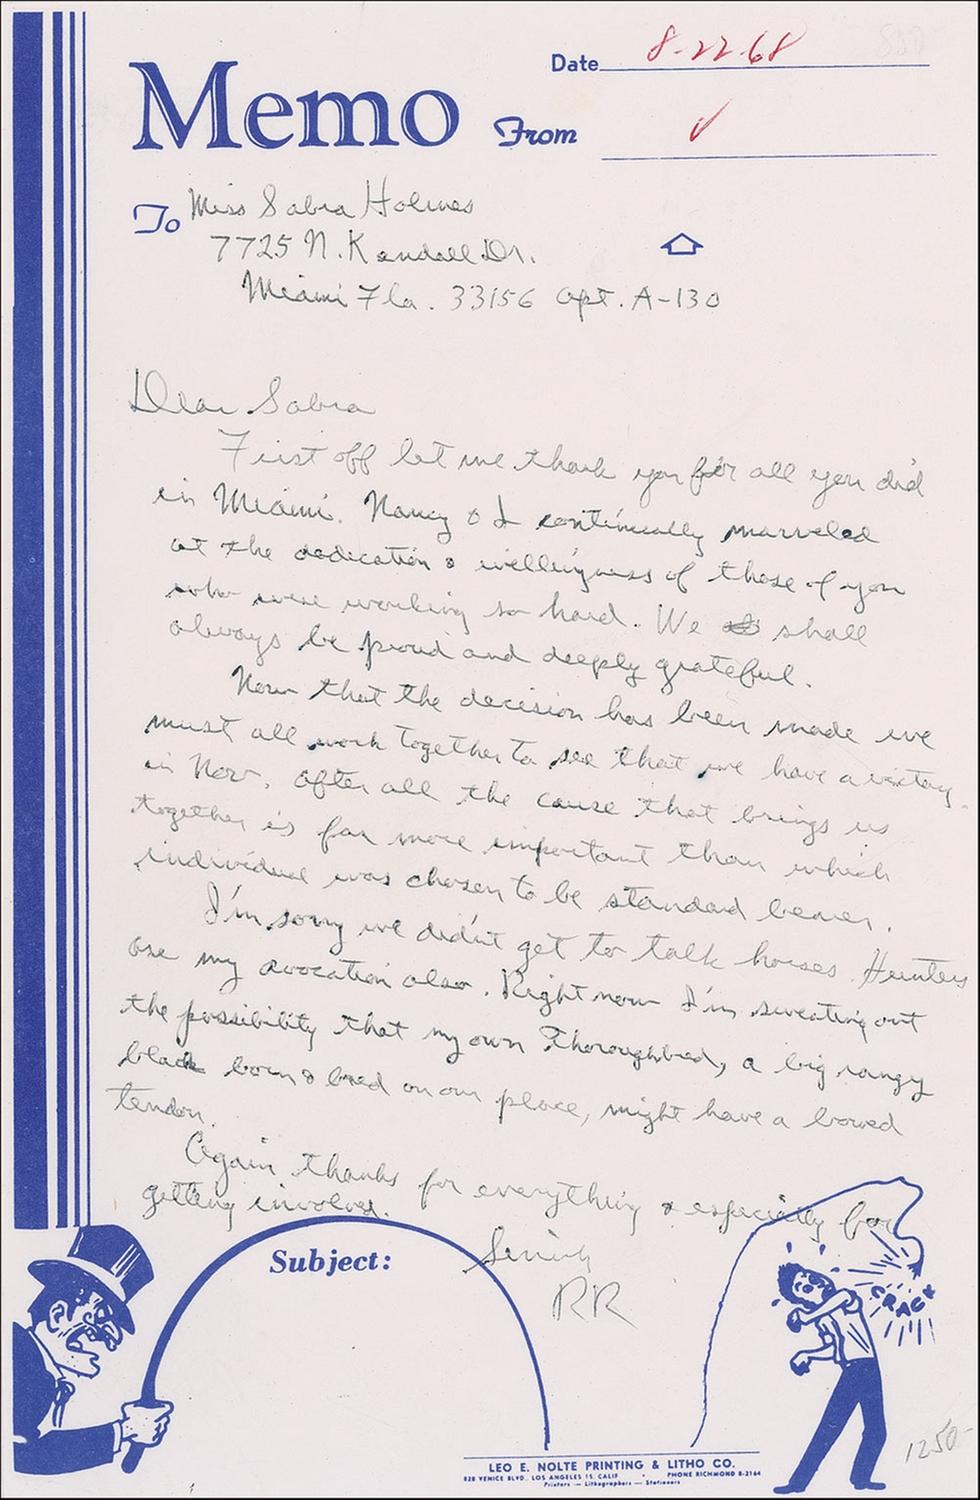 Memo
Date 8-22-68
From ✓
To Miss Sabra Holmes
7725 N. Kendall Dr.
Miami Fla. 33156 Apt. A-130
Dear Sabra
First off let me thank you for all you did
in Miami. Nancy & I continually marveled
at the dedication & willingness of those of you
who were working so hard. We shall
always be proud and deeply grateful.
Now that the decision has been made we
must all work together to see that we have a victory
in Nov. After all the cause that brings us
together is far more important than which
individual was chosen to be standard bearer.
I'm sorry we didn't get to talk horses. Hunters
are my avocation also. Right now I'm sweating out
the possibility that my own Thoroughbred, a big rangy
black born & bred on our place, might have a bowed
tendon.
Again thanks for everything & especially for
getting involved.
Sincerely
RR
Subject:
CRACK
LEO E. NOLTE PRINTING & LITHO CO.
828 VENICE BLVD., LOS ANGELES 15, CALIF. PHONE RICHMOND 8-2164
Printers — Lithographers — Stationers
1250-